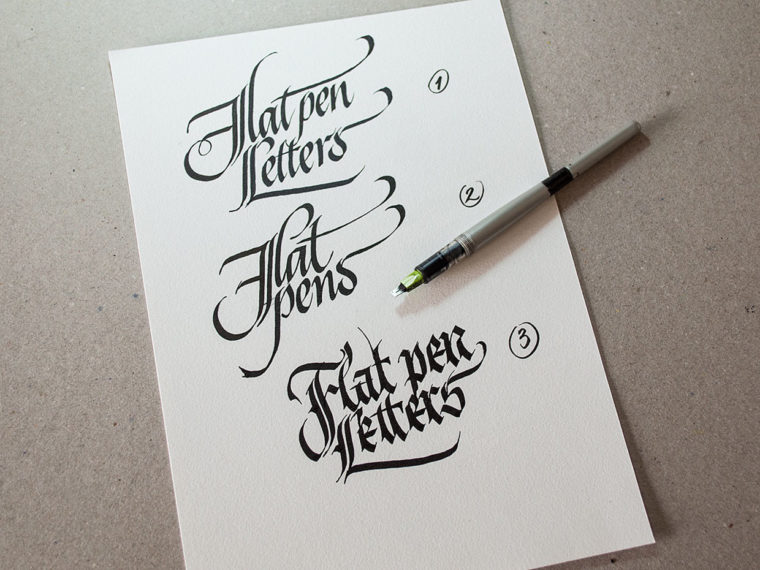 Flat pen
Letters
1
Flat
pens
2
Flat pen
Letters
3